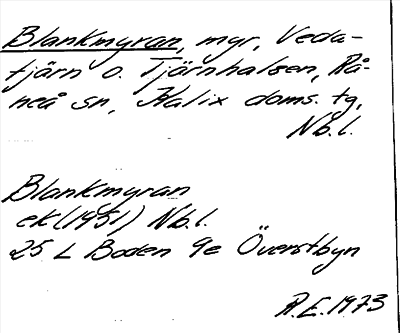 Blankmyran, myr, Veda-
tjärn o. Tjärnhalsen, Rå-
neå sn, Kalix doms. tg,
Nb.l.
Blankmyran
ek (1951) Nb.l.
25 L Boden 9e Överstbyn
R.E. 1973